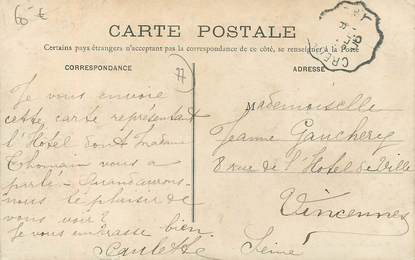 60 €
CARTE POSTALE
Certains pays étrangers n'acceptant pas la correspondance de ce côté, se renseigner à la Poste
CORRESPONDANCE
77
ADRESSE
Je vous envoie
cette carte représentant
l'Hôtel dont Madame
Thomain vous a
parlé - Quand aurons-
nous le plaisir de
vous voir ?
Je vous embrasse bien.
Paulette
Mademoiselle
Jeanne Gaucherig
8 rue de l'Hotel de Ville
Vincennes
Seine